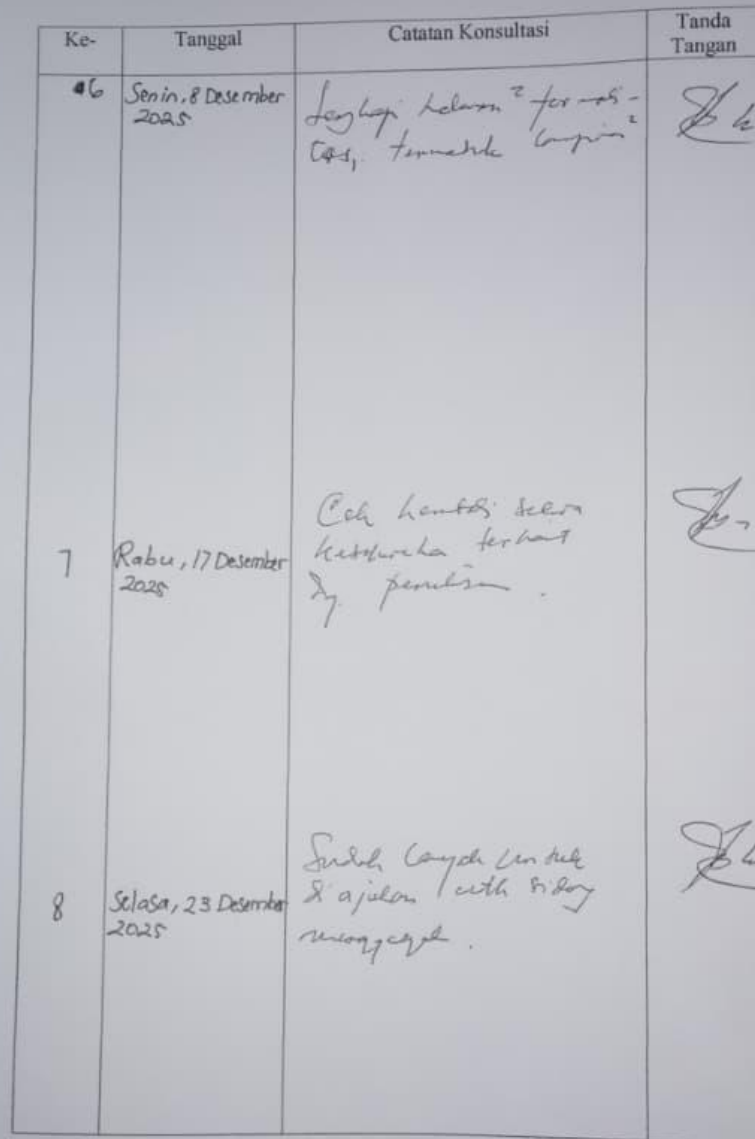 Ke-
Tanggal
Catatan Konsultasi
Tanda
Tangan
6
Senin, 8 Desember
2025
Lengkapi halaman² formali-
tas, termasuk lampiran²
7
Rabu, 17 Desember
2025
Cek kembali secara
terkait
dg. penulisan.
8
Selasa, 23 Desember
2025
Sudah layak untuk
diajukan utk sidang